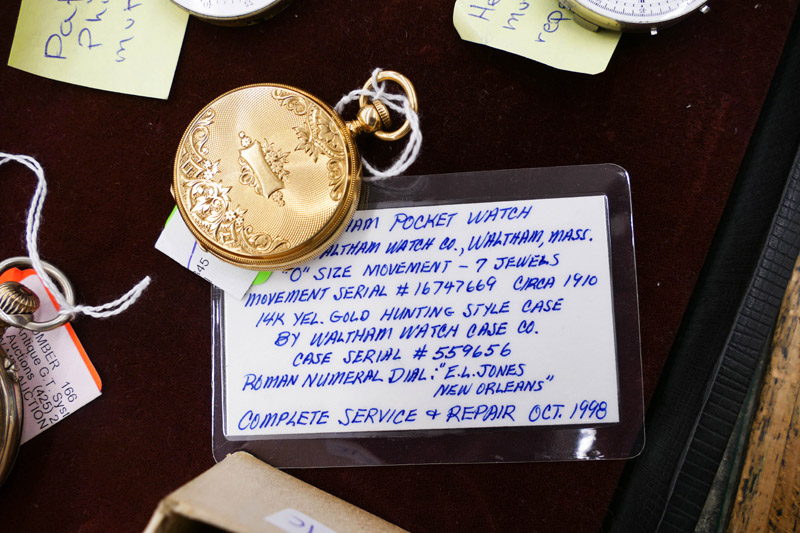 HAM POCKET WATCH
WALTHAM WATCH CO., WALTHAM, MASS.
"O" SIZE MOVEMENT – 7 JEWELS
MOVEMENT SERIAL # 16747669 CIRCA 1910
14K YEL. GOLD HUNTING STYLE CASE
BY WALTHAM WATCH CASE CO.
CASE SERIAL # 559656
ROMAN NUMERAL DIAL: "E.L. JONES
NEW ORLEANS"
COMPLETE SERVICE & REPAIR OCT. 1998
MBER 166
ntique G.T. Sys
Auctions
(425) 2
CTION